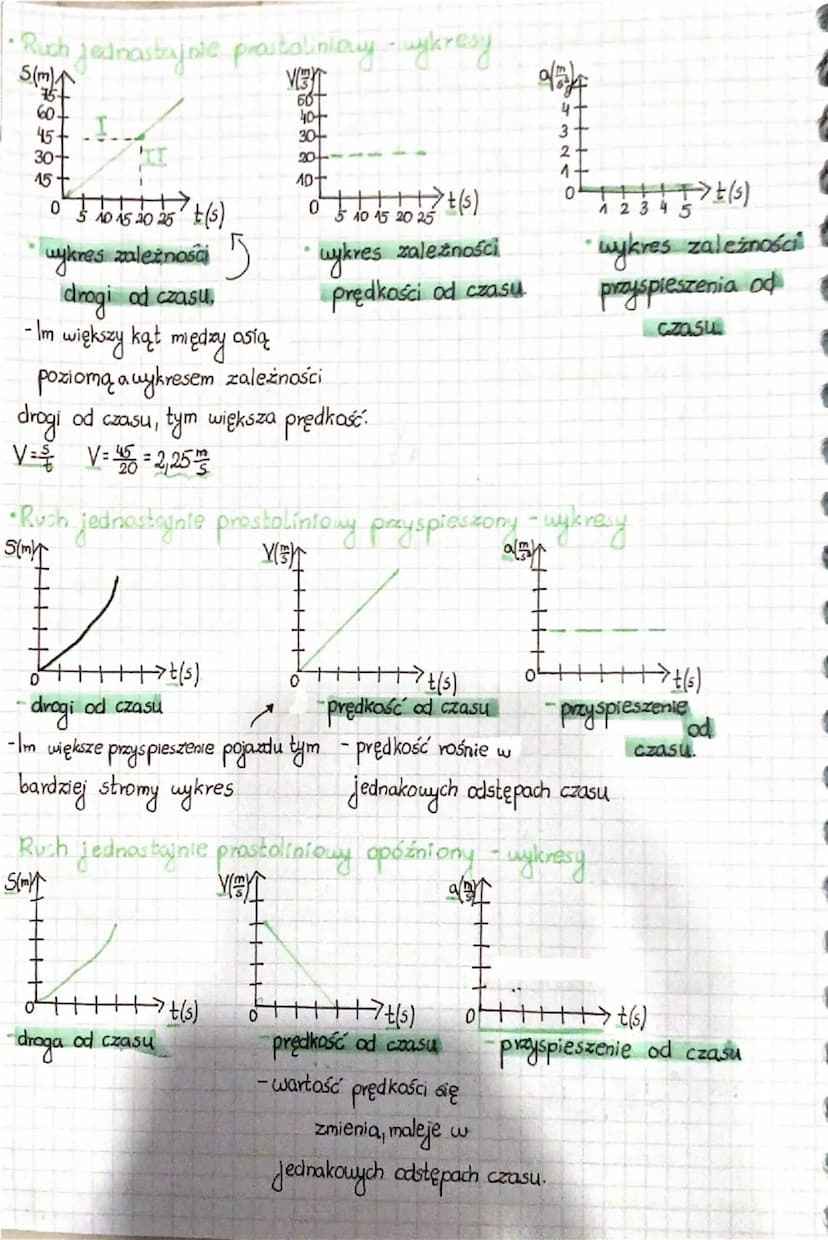 • Ruch jednostajnie prostoliniowy - wykresy
S(m)
75
60
45
30
15
0
5 10 15 20 25 t(s)
I
II
V(m/s)
50
40
30
20
10
0
5 10 15 20 25 t(s)
a(m/s²)
4
3
2
1
0
1 2 3 4 5 t(s)
• wykres zależności
drogi od czasu.
• wykres zależności
prędkości od czasu.
• wykres zależności
przyspieszenia od
czasu.
- Im większy kąt między osią
poziomą a wykresem zależności
drogi od czasu, tym większa prędkość.
V = s/t V = 45/20 = 2,25 m/s
• Ruch jednostajnie prostoliniowy przyspieszony - wykresy
S(m)
0 t(s)
V(m/s)
0 t(s)
a(m/s²)
0 t(s)
- drogi od czasu
- prędkość od czasu
- przyspieszenie
od
czasu.
- Im większe przyspieszenie pojazdu tym
bardziej stromy wykres
- prędkość rośnie w
jednakowych odstępach czasu
Ruch jednostajnie prostoliniowy opóźniony - wykresy
S(m)
0 t(s)
V(m/s)
0 t(s)
0 t(s)
- droga od czasu
- prędkość od czasu
- przyspieszenie od czasu
- wartość prędkości się
zmienia, maleje w
jednakowych odstępach czasu.